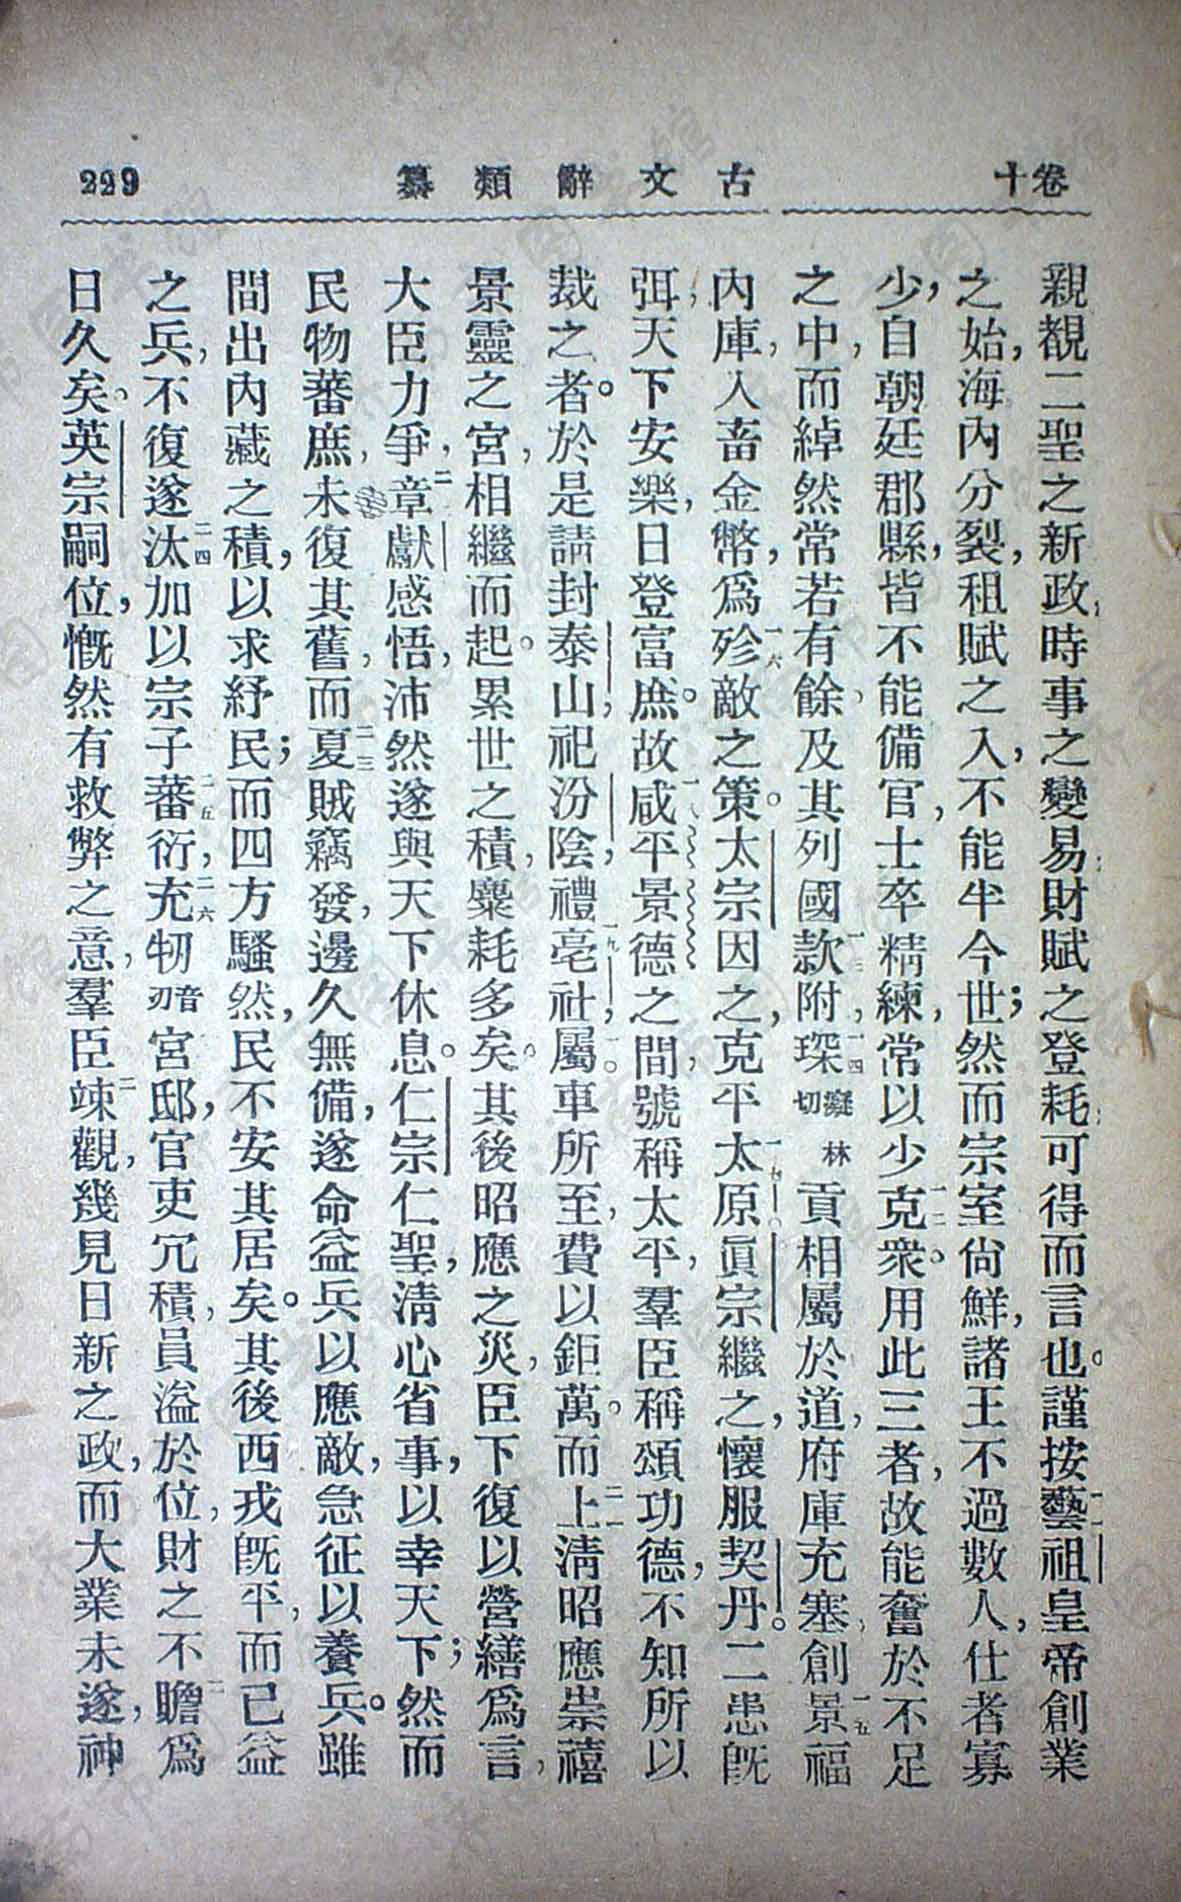 卷十
古文辭類纂
229
親覩二聖之新政，時事之變易，財賦之登耗，可得而言也。謹按藝一一祖皇帝創業
之始，海內分裂，租賦之入，不能半今世；然而宗室尙鮮，諸王不過數人，仕者寡
少，自朝廷郡縣，皆不能備官，士卒精練，常以少克一二衆。用此三者，故能奮於不足
之中，而綽然常若有餘，及其列國款一三附，琛一四癡林切貢相屬於道，府庫充塞，創景一五福
內庫，入畜金幣，爲殄一六敵之策。太宗因之，克平太一七原。眞宗繼之，懷服契丹。二患旣
弭，天下安樂，日登富庶。故咸一八平景德之間，號稱太平，羣臣稱頌功德，不知所以
裁之者。於是請封泰山，祀汾陰，禮亳一九社，屬二〇車所至，費以鉅萬。而上二一淸昭應崇禧
景靈之宮，相繼而起。累世之積，糜耗多矣。其後昭應之災，臣下復以營繕爲言，
大臣力爭，章二二獻感悟，沛然遂與天下休息。仁宗仁聖，淸心省事，以幸天下；然而
民物蕃庶，未復其舊，而夏二三賊竊發，邊久無備，遂命益兵以應敵，急征以養兵。雖
間出內藏之積，以求紓民；而四方騷然，民不安其居矣。其後西戎旣平，而已益
之兵，不復遂汰二四加以宗子蕃二五衍，充二六牣音刃宮邸，官吏冗積，員溢於位，財之不贍爲
日久矣。英宗嗣位，慨然有救弊之意，羣臣竦觀，幾見日新之政，而大業未遂，神